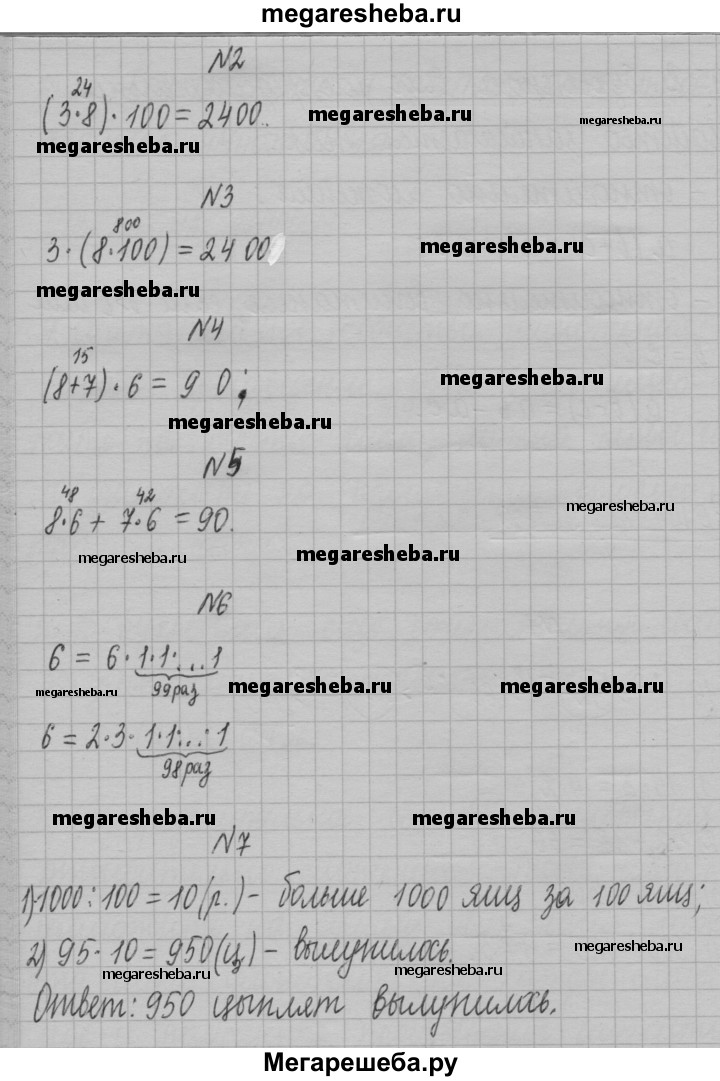 megaresheba.ru
N2
24
(3·8)·100=2400.
megaresheba.ru megaresheba.ru
megaresheba.ru
N3
800
3·(8·100)=2400
megaresheba.ru
megaresheba.ru
N4
15
(8+7)·6=90;
megaresheba.ru
megaresheba.ru
N5
48 42
8·6+7·6=90.
megaresheba.ru
megaresheba.ru megaresheba.ru
N6
6=6·1·1·...1
99раз
megaresheba.ru megaresheba.ru megaresheba.ru
6=2·3·1·1·...·1
98раз
megaresheba.ru megaresheba.ru
N7
1)1000:100=10(р.)- больше 1000 яиц за 100 яиц;
2) 95·10=950(ц)- вылупилось.
megaresheba.ru
megaresheba.ru megaresheba.ru
Ответ: 950 цыплят вылупилось.
Мегарешеба.ру